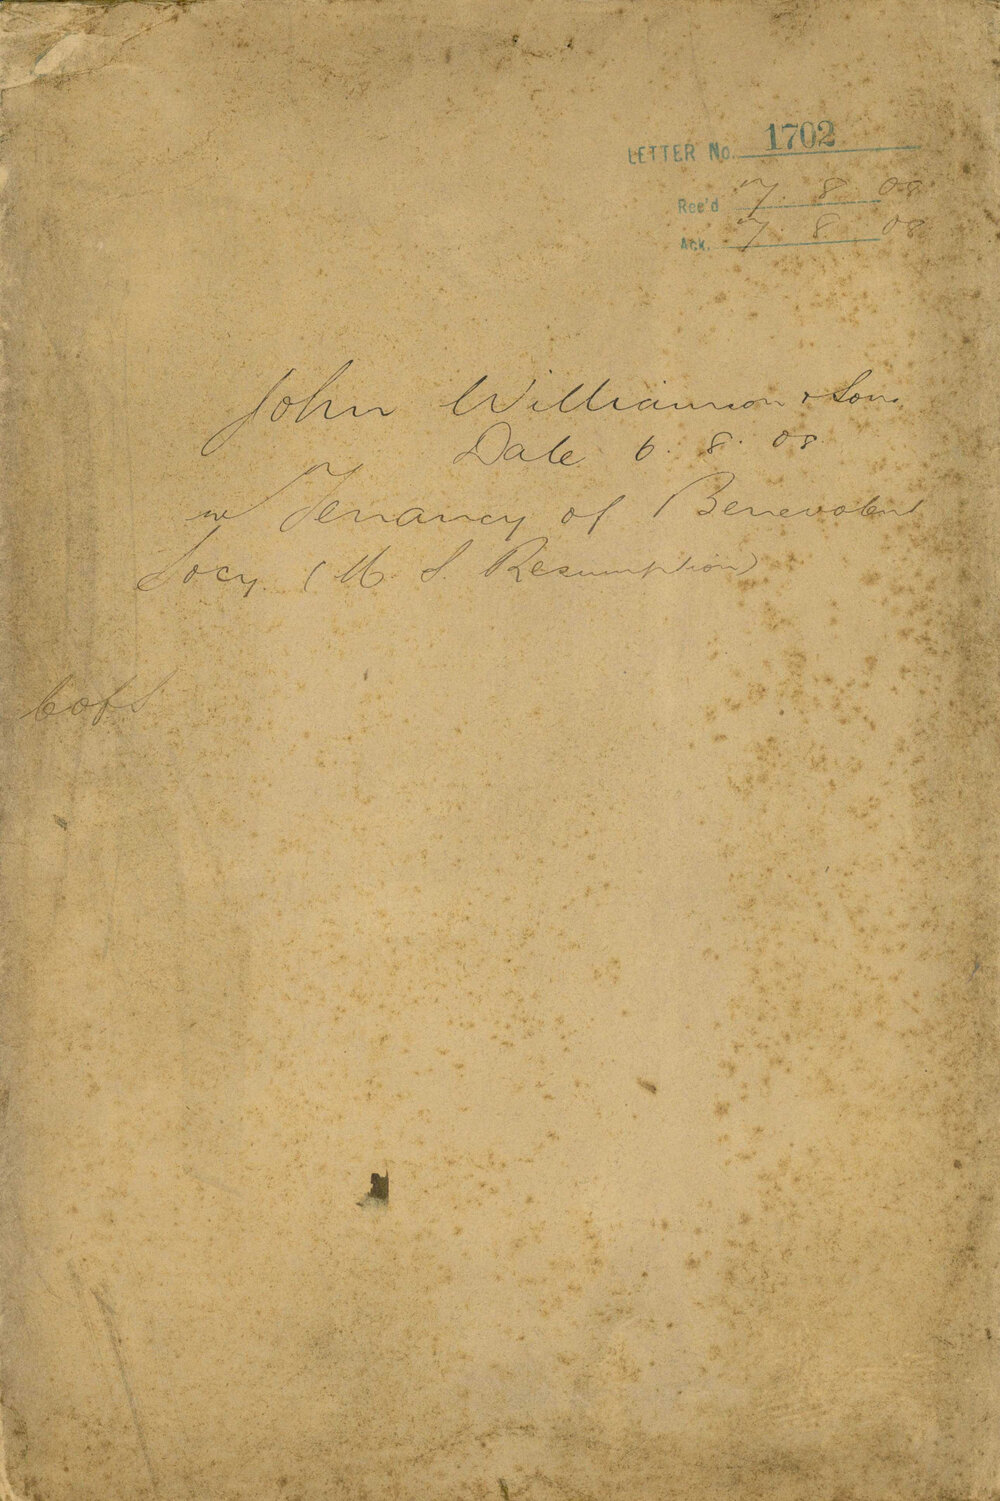 LETTER No. 1702
Rec'd 7. 8. 08
Ack. 7. 8. 08
John Williamson & Sons
Date 6. 8. 08
re Tenancy of Benevolent
Socy. (M. S. Resumption)